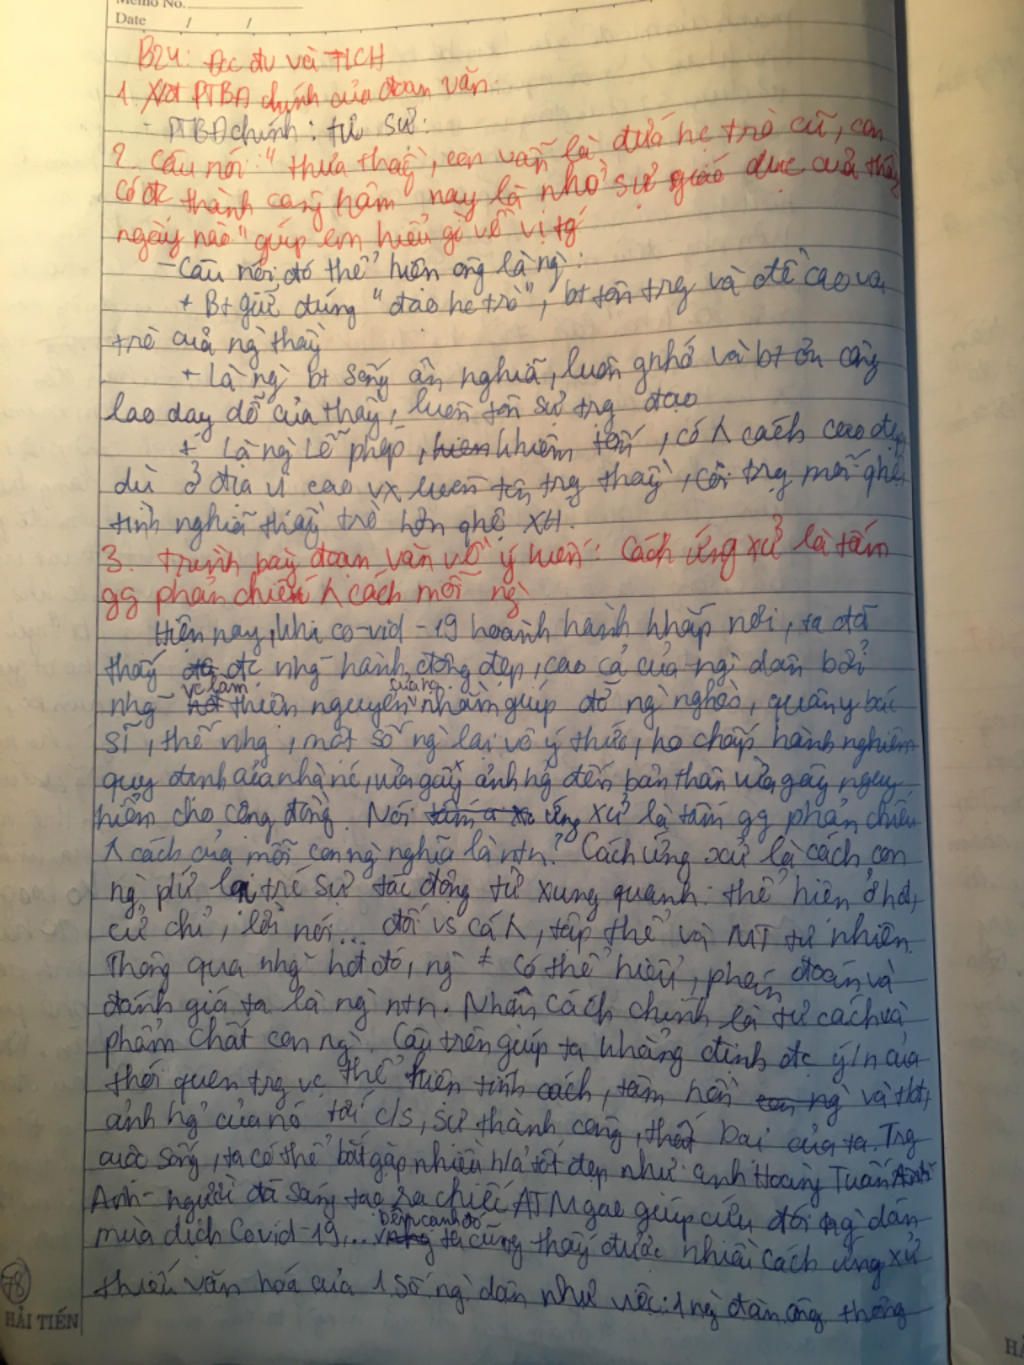 Memo No.
Date / /
B24: Đọc đv và TLCH
1. Xđ PTBĐ chính của đoạn văn.
- PTBĐ chính: tự sự.
2. Câu nói: "thưa thầy, con vẫn là đứa học trò cũ, con
có đc thành công hôm nay là nhờ sự giáo dục của thầy
ngày nào" giúp em hiểu gì về vị tg
- Câu nói đó thể hiện ông là ng`:
+ Bt giữ đúng "đạo học trò", bt tôn trg và đề cao vai
trò của ng` thầy
+ Là ng` bt sống ân nghĩa, luôn ghi nhớ và bt ơn công
lao dạy dỗ của thầy, luôn tôn sư trg đạo
+ Là ng` lễ phép, khiêm tốn, có ^ cách cao đẹp
dù ở địa vị cao vx luôn tôn trg thầy, coi trg mối qhệ
tình nghĩa thầy trò hơn qhệ XH.
3. Trình bày đoạn văn về ý kiến: Cách ứng xử là tấm
gg phản chiếu ^ cách mỗi ng`
Hiện nay, khi co-vid-19 hoành hành khắp nơi, ta đã
thấy đc nhg~ hành động đẹp, cao cả của ng` dân bởi
nhg~ vc làm thiện nguyện của họ nhằm giúp đỡ ng` nghèo, quân y bác
sĩ, thế nhg, một số ng` lại vô ý thức, họ chấp hành nghiêm
quy định của nhà nc, vừa gây ảnh hg đến bản thân vừa gây nguy
hiểm cho cộng đồng. Nói ứng xử là tấm gg phản chiếu
^ cách của mỗi con ng` nghĩa là ntn? Cách ứng xử là cách con
ng` p/ứ lại trc sự tác động từ xung quanh: thể hiện ở hđ,
cử chỉ, lời nói... đối vs cá ^, tập thể và MT tự nhiên.
Thông qua nhg~ hđ đó, ng` ≠ có thể hiểu, phán đoán và
đánh giá ta là ng` ntn. Nhân cách chính là tư cách và
phẩm chất con ng`. Câu trên giúp ta khẳng định đc ý/n của
thói quen trg vc thể hiện tính cách, tâm hồn ng` và
ảnh hg của nó tới c/s, sự thành công, thất bại của ta. Trg
cuộc sống, ta có thể bắt gặp nhiều h/a tốt đẹp như anh Hoàng Tuấn
Anh - người đã sáng tạo ra chiếc ATM gạo giúp cứu đói ng` dân
mùa dịch Covid-19,... bên cạnh đó ta cũng thấy được nhiều cách ứng xử
thiếu văn hoá của 1 số ng` dân như việc: 1 ng` đàn ông thông
78
HẢI TIẾN